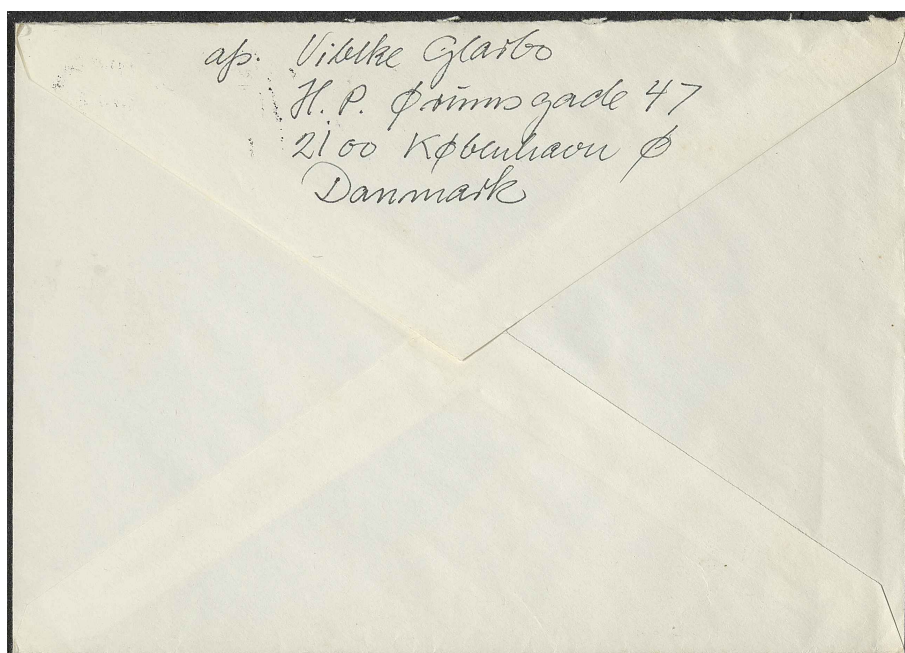 afs. Vibeke Glarbo
H. P. Ørumsgade 47
2100 København Ø
Danmark